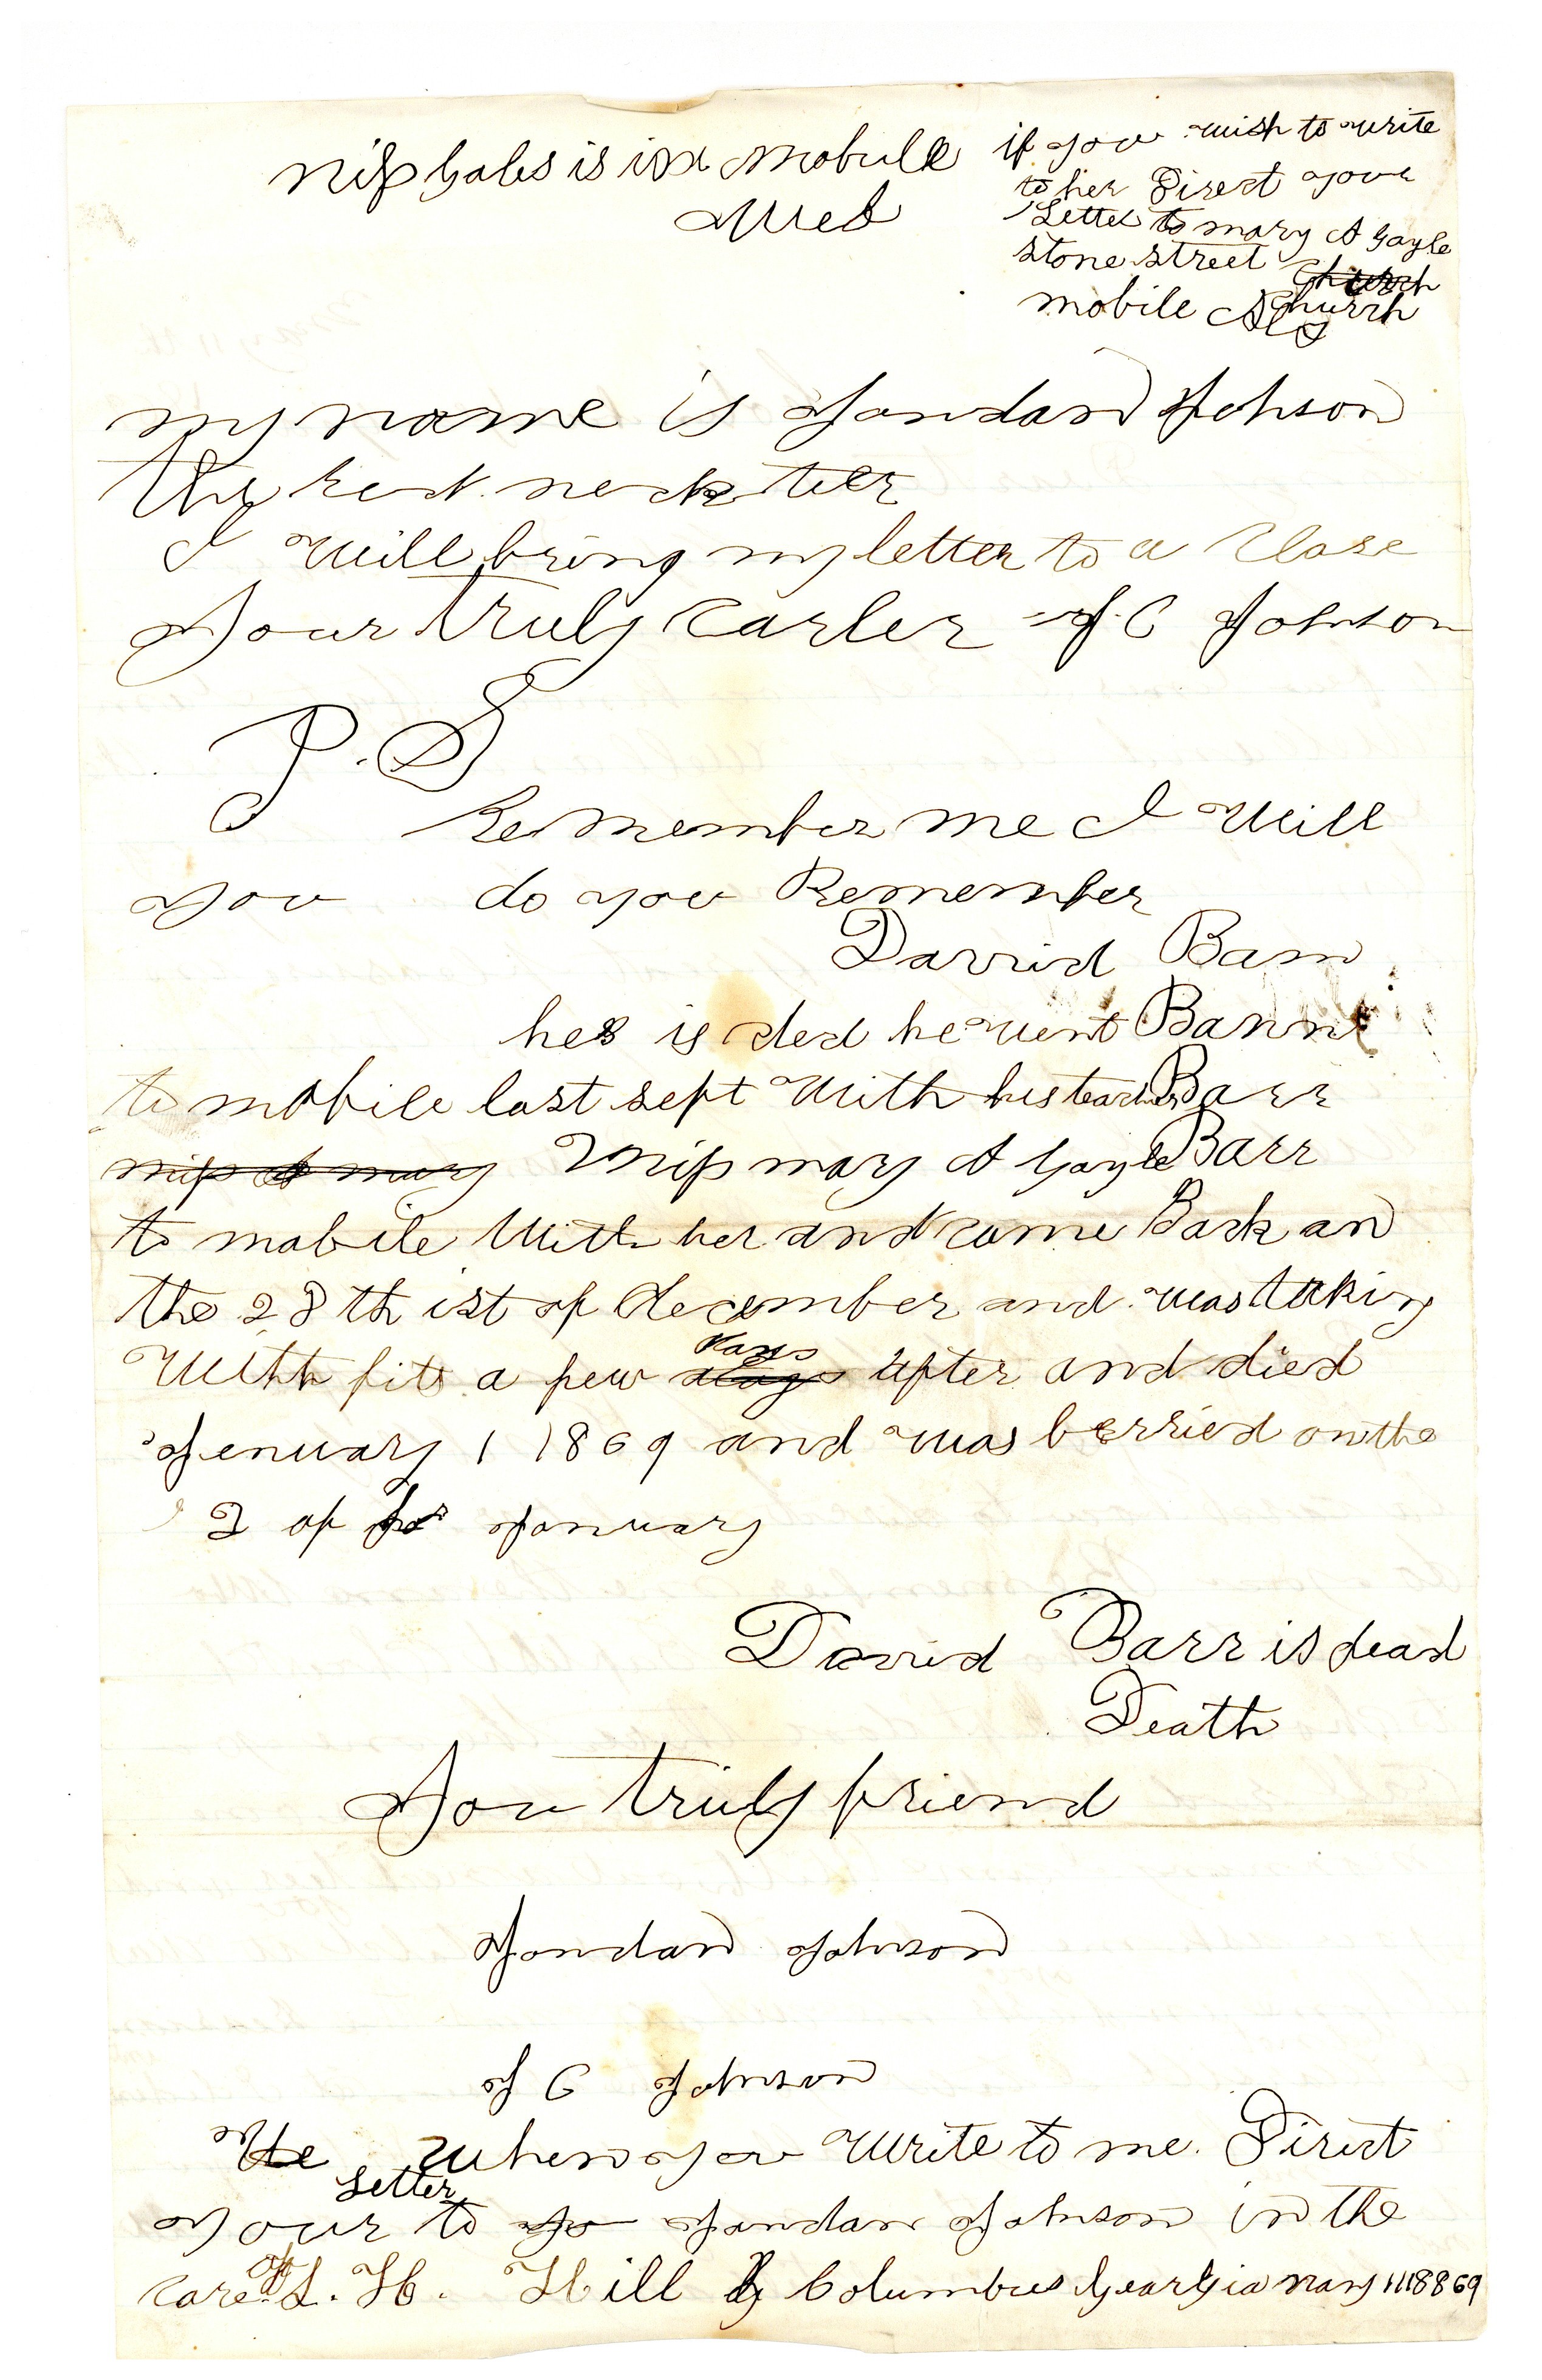 Miss Gales is in Mobile
if you wish to write
to her Direct your
Letter to mary A Gayle
stone street Church
Church
mobile Ala
my name is Jordan Johson
the red neck
I will bring my letter to a Close
Your truly J. C Johnson
P. S
Remember me I will
you do you Remember
Davrid Barn
hes is ded he went Bann
to mobile last sept With his teacher Barr
miss A mary Miss mary A Gayle Barr
to mobile With her and came Back an
the 28 th ist of december and was taking
With fits a few days days after and died
Jenuary 1 1869 and was berried on the
2 of January
David Barr is dead
Death
You truly friend
Jordan Johnson
J C Johnson
When you Write to me. Direct
Letter
your to Jordan Johnson in the
care of L. H. Hill Columbus Georgia may 11 18869